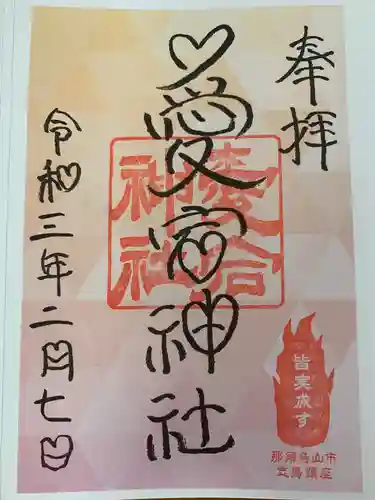 奉拝
愛宕神社
令和三年二月七日
愛宕
神社
皆実成す
那須烏山市